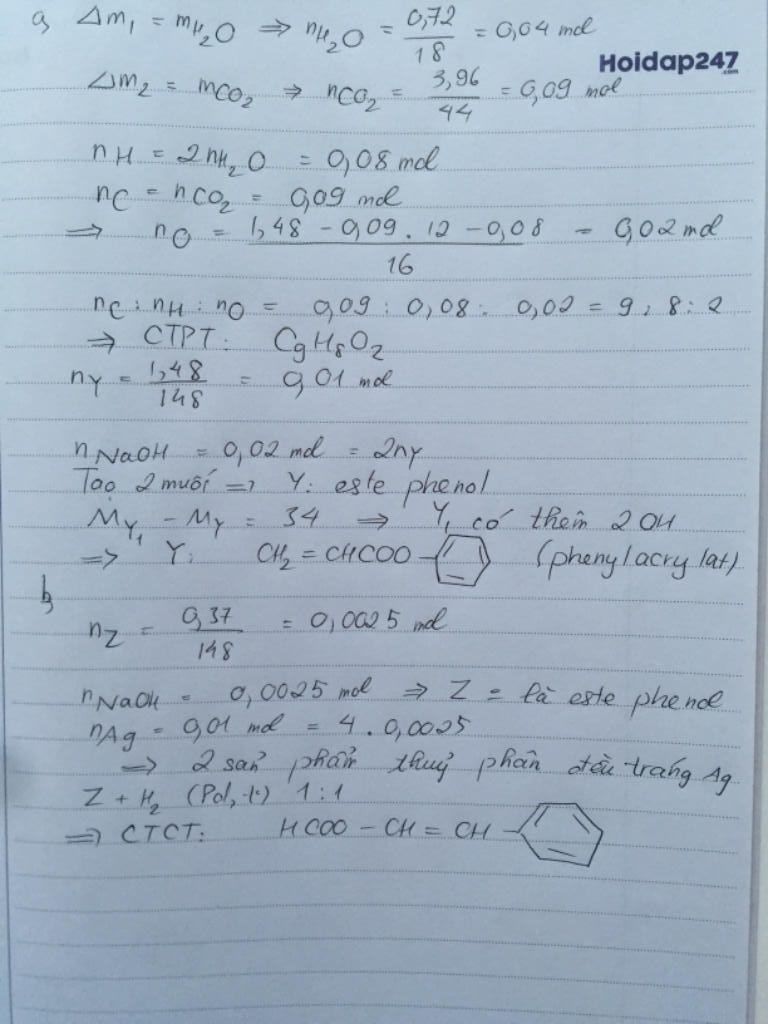 a, Δm₁ = mH₂O ⇒ nH₂O = 0,72/18 = 0,04 mol
Hoidap247.com
Δm₂ = mCO₂ ⇒ nCO₂ = 3,96/44 = 0,09 mol
nH = 2nH₂O = 0,08 mol
nC = nCO₂ = 0,09 mol
⇒ nO = (1,48 - 0,09 . 12 - 0,08)/16 = 0,02 mol
nC : nH : nO = 0,09 : 0,08 : 0,02 = 9 : 8 : 2
⇒ CTPT: C₉H₈O₂
nY = 1,48/148 = 0,01 mol
nNaOH = 0,02 mol = 2nY
Tạo 2 muối ⇒ Y: este phenol
MY₁ - MY = 34 ⇒ Y₁ có thêm 2 OH
⇒ Y: CH₂ = CHCOO - (phenyl acry lat)
b,
nZ = 0,37/148 = 0,0025 mol
nNaOH = 0,0025 mol ⇒ Z = là este phenol
nAg = 0,01 mol = 4 . 0,0025
⇒ 2 sản phẩm thuỷ phân đều tráng Ag
Z + H₂ (Pd, t°) 1 : 1
⇒ CTCT: HCOO - CH = CH -